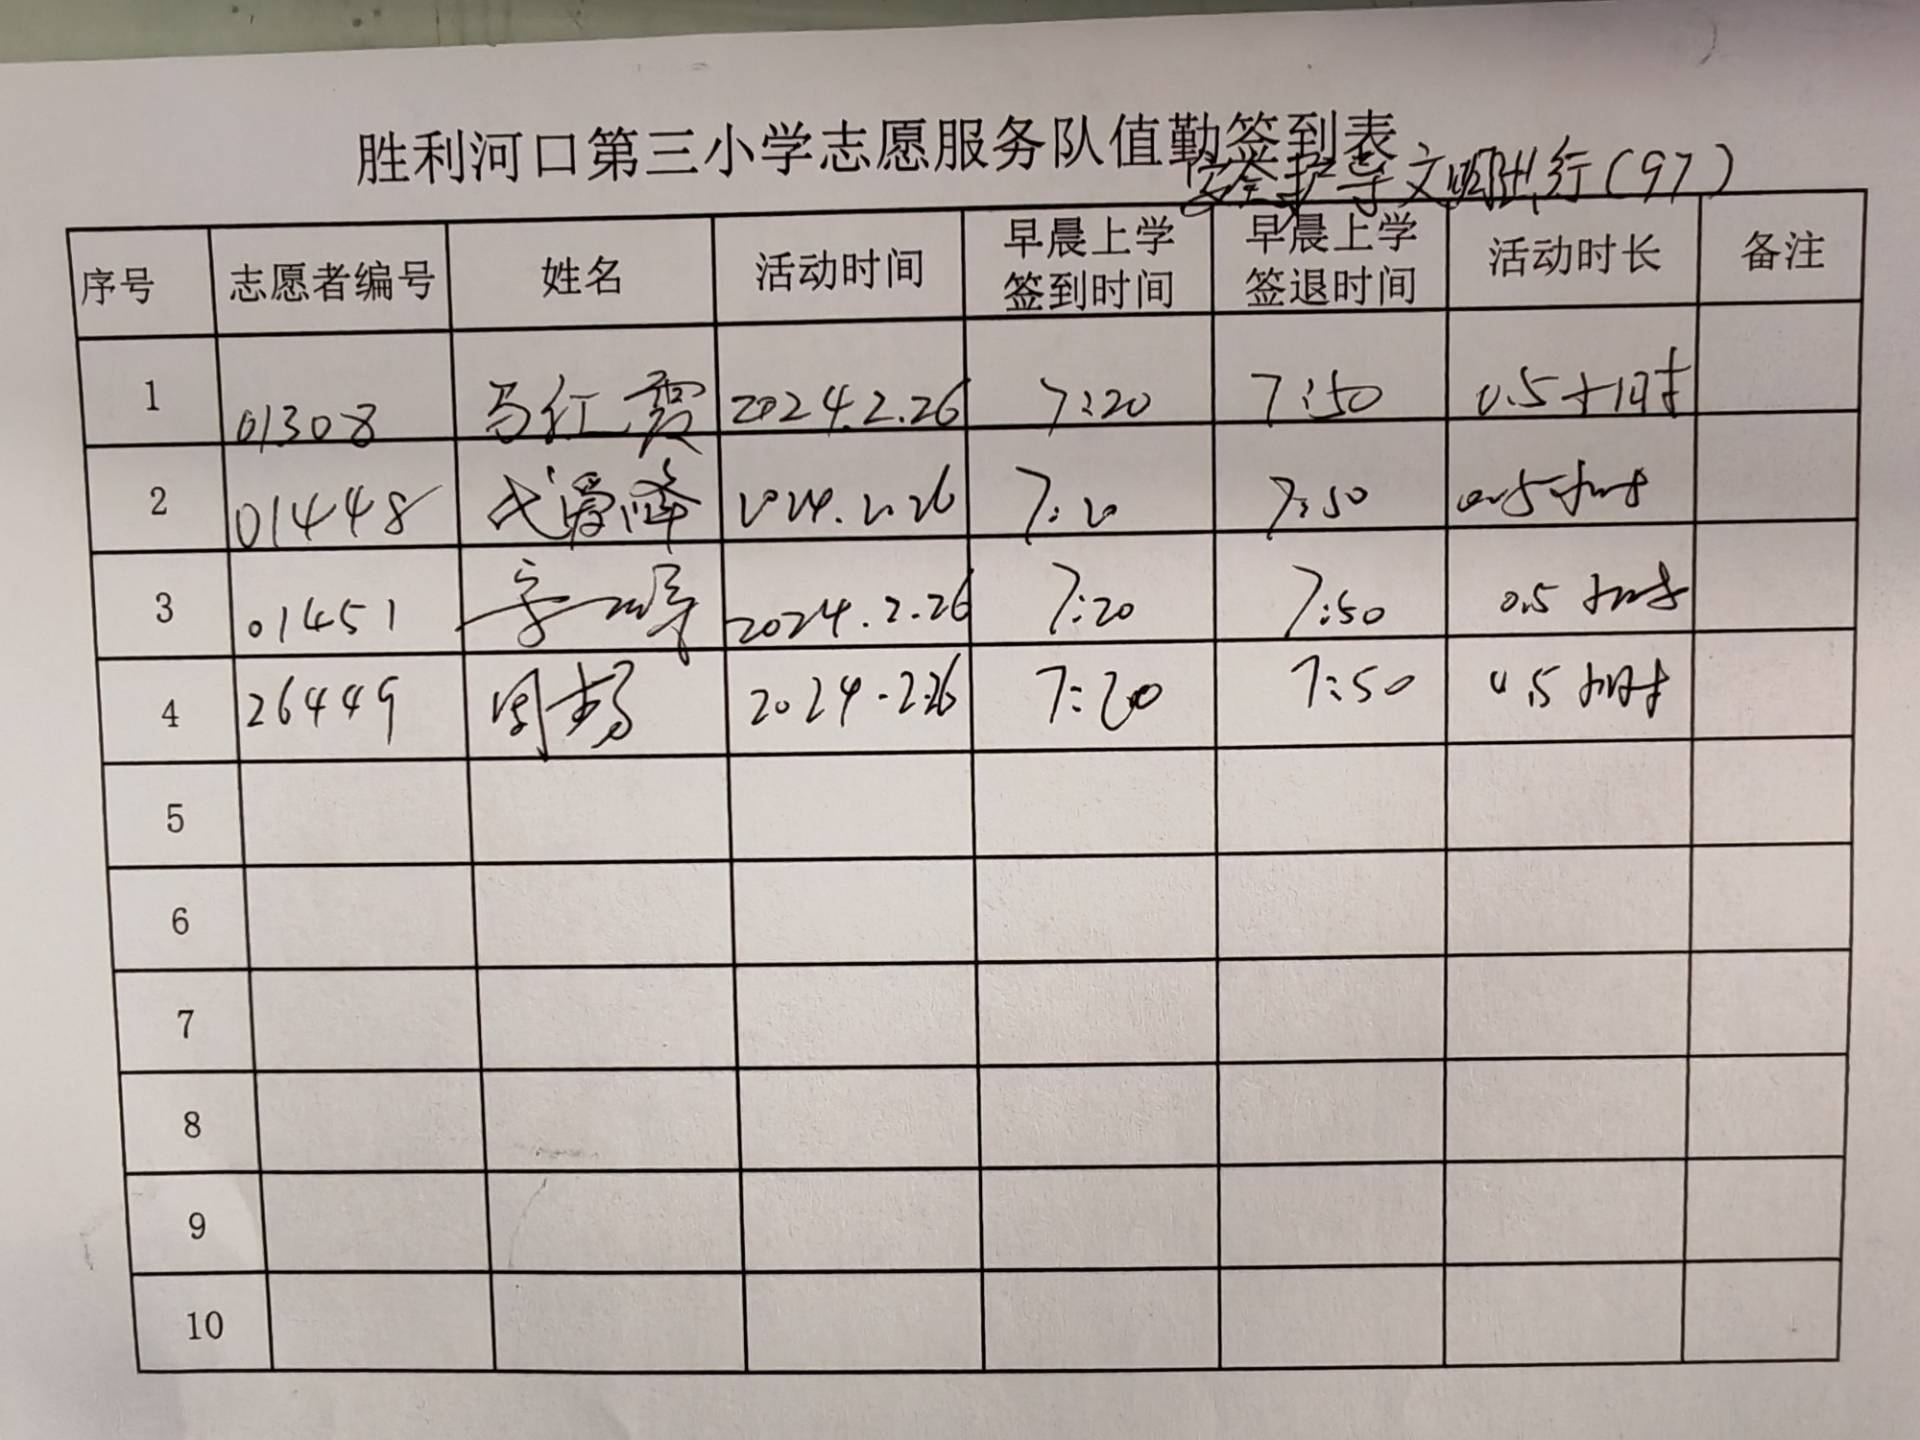 胜利河口第三小学志愿服务队值勤签到表
安全护导文明出行(97)
序号 志愿者编号 姓名 活动时间 早晨上学签到时间 早晨上学签退时间 活动时长 备注
1 01308 马红霞 2024.2.26 7:20 7:50 0.5小时
2 01448 2024.2.26 7:20 7:50 0.5小时
3 01451 2024.2.26 7:20 7:50 0.5小时
4 26449 2024.2.26 7:20 7:50 0.5小时
5
6
7
8
9
10